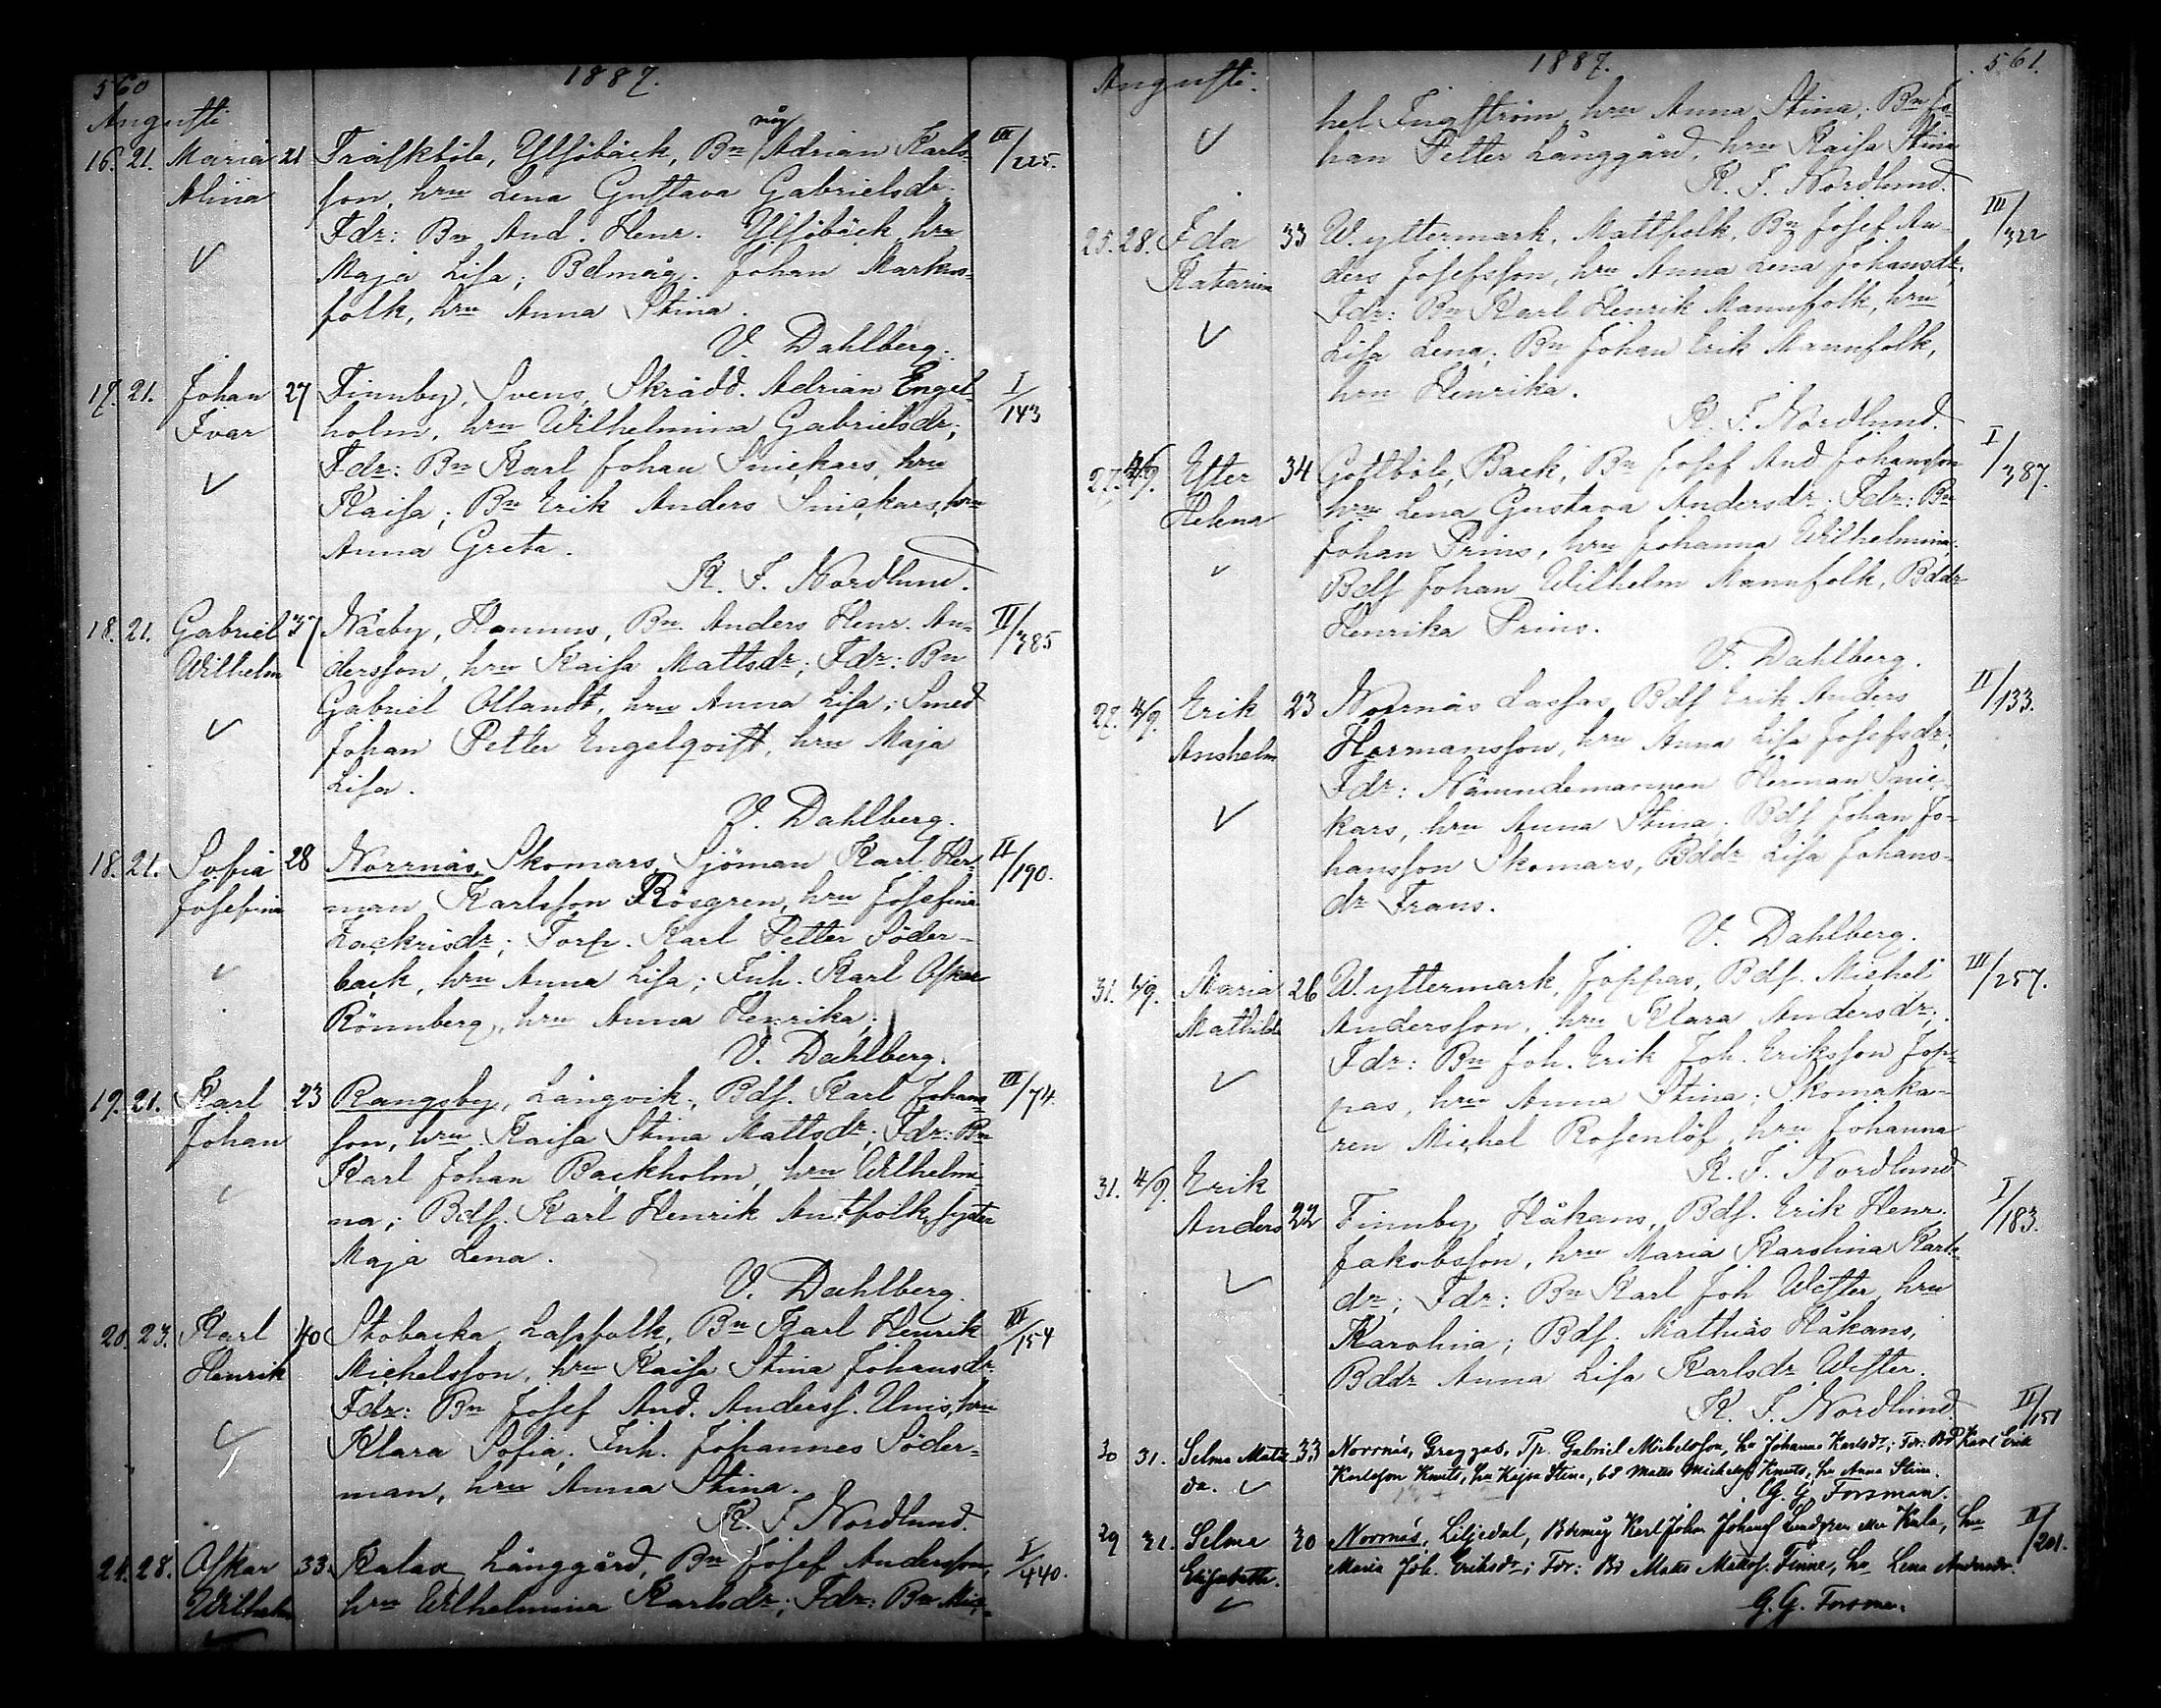 560
1887.
Augusti
16. 21. Maria 21 Träskböle, Ylföbäck, Bn måg Adrian Karls- III/225.
Alina son, hru Lena Gustava Gabrielsdr.
Fdr: Bn And. Henr. Ylföbäck, hru
Maja Lisa; Bdmåg. Johan Markus-
folk, hru Anna Stina.
V. Dahlberg.
17. 21. Johan 27 Finnby, Svens, Skrädd. Adrian Engel- I/143
Ivar holm, hru Wilhelmina Gabrielsdr;
Fdr: Bn Karl Johan Snickars, hru
Kaisa; Bn Erik Anders Snickars, hru
Anna Greta.
K. F. Nordlund.
18. 21. Gabriel 37 Näsby, Hannus, Bn. Anders Henr. An- II/385
Wilhelm dersson, hru Kaisa Mattsdr; Fdr: Bn
Gabriel Ollandt, hru Anna Lisa; Smed
Johan Petter Engelqvist, hru Maja
Lisa.
V. Dahlberg.
18. 21. Sofia 28 Norrnäs, Skomars, Sjöman Karl Her- II/190.
Josefina man Karlsson Rosgren, hru Josefina
Zackrisdr; Torp. Karl Petter Söder-
back, hru Anna Lisa; Inh. Karl Oskar
Rönnberg, hru Anna Henrika.
V. Dahlberg.
19. 21. Karl 23 Rangsby, Långvik, Bds. Karl Johans- III/74.
Johan son, hru Kaisa Stina Mattsdr; Fdr: Bn
Karl Johan Backholm, hru Wilhelmi-
na; Bds. Karl Henrik Antfolk, syster
Maja Lena.
V. Dahlberg.
20. 23. Karl 40 Stobacka, Lassfolk, Bn Karl Henrik III/154
Henrik Michelsson, hru Kaisa Stina Johansdr.
Fdr: Bn Josef And. Anders. Unis, hru
Klara Sofia; Inh. Johannes Söder-
man, hru Anna Stina.
K. F. Nordlund.
24. 28. Oskar 33. Kalax Långgård, Bn Josef Andersson, I/440.
Wilhelm hru Wilhelmina Karlsdr; Fdr: Bn Mic-
Augusti.
1887.
561.
hel Ingström, hru Anna Stina; Bn Jo-
han Petter Långgård, hru Kaisa Stina
K. F. Nordlund.
25. 28. Ida 33 W. yttermark, Mattfolk, Bn Josef An- III/322
Katarina ders Josefsson, hru Anna Lena Johansdr;
Fdr: Bn Karl Henrik Mannfolk, hru
Lisa Lena; Bn Johan Erik Mannfolk,
hru Henrika.
K. F. Nordlund.
27. 4/9. Ester 34 Gottböle, Back, Bn Josef And Johansson I/387.
Helena hru Lena Gustava Andersdr; Fdr: Bn
Johan Prins, hru Johanna Wilhelmina;
Bds Johan Wilhelm Mannfolk, Bddr
Henrika Prins.
V. Dahlberg.
27. 4/9. Erik 23 Norrnäs Lassas, Bds Erik Anders II/133.
Anshelm Hermansson, hru Anna Lisa Josefsdr;
Fdr: Nämndemannen Herman Snic-
kars, hru Anna Stina; Bds Johan Jo-
hansson Skomars, Bddr Lisa Johans-
dr Frans.
V. Dahlberg.
31. 4/9. Maria 26 W. yttermark, Joppas, Bds. Michel III/257.
Mathilda Andersson, hru Klara Andersdr;
Fdr: Bn Joh. Erik Joh. Eriksson Jop-
pas, hru Anna Stina; Skomaka-
ren Michel Rosenlöf, hru Johanna
K. F. Nordlund
31. 4/9. Erik
Anders 22 Finnby, Håkans, Bds. Erik Henr. I/183.
Jakobsson, hru Maria Karolina Karls-
dr; Fdr: Bn Karl Joh Wester, hru
Karolina; Bds. Mathias Håkans,
Bddr Anna Lisa Karlsdr Wester.
K. F. Nordlund.
30 31. Selma Matil- 33 Norrnäs, Greggas, Tp. Gabriel Michelsson, hu Johanna Karlsdr; Fdr: Bd Karl Erik II/151
da. Karlsson Knuts, hu Kajsa Stina, bd Matts Michelss Knuts, hu Anna Stina.
G. G. Forsman.
29 31. Selma 30 Norrnäs, Liljedal, Bdemåg Karl Johan Johanss Lindgren eller Kula, hu II/201.
Elisabeth. Maria Joh. Eriksdr; Fdr: Bd Matts Mattss. Finne, hu Lena Andersdr.
G. G. Forsman.